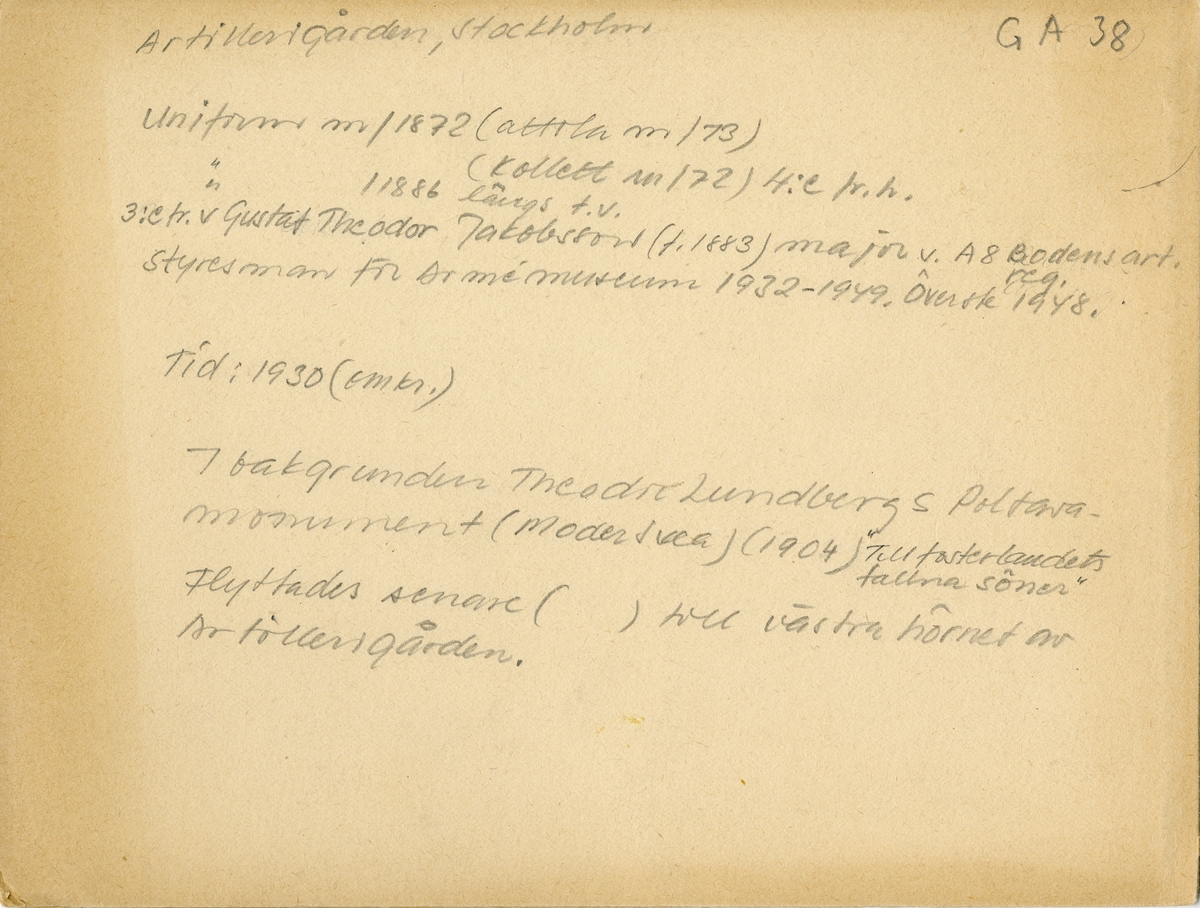 Artillerigården, Stockholm
G A 38
Uniform m/1872 (attila m/73)
" (Kollett m/72) 4:e fr. h.
" /1886 längs t.v.
3:e fr. v Gustaf Theodor Jakobsson (f. 1883) major v. A8 Bodens art. reg.
Styresman för Armémuseum 1932-1949. Överste 1948.
Tid: 1930 (omkr.)
I bakgrunden Theodor Lundbergs Poltava-
monument (Moder Svea) (1904) "Till fosterlandets
fallna söner"
Flyttades senare ( ) till västra hörnet av
Artillerigården.